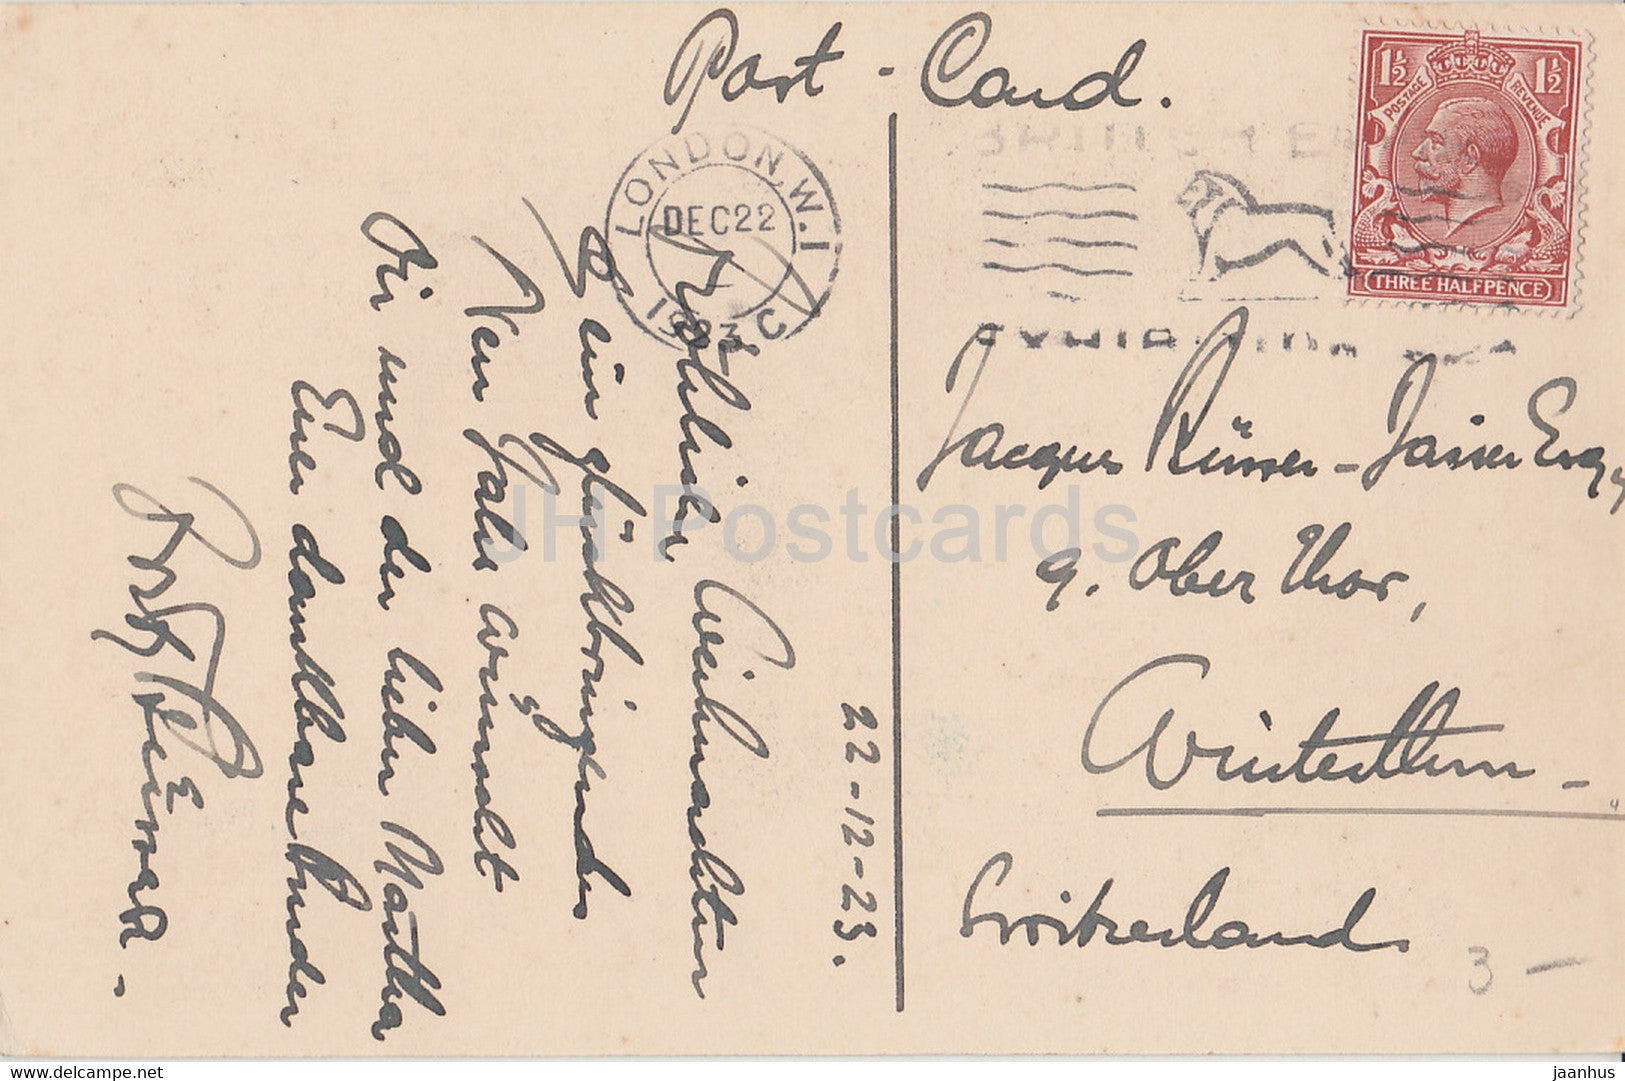 Post - Card.
LONDON. W.1
DEC 22
1923
C
BRITISH EMPIRE
EXHIBITION
1½ 1½
POSTAGE REVENUE
THREE HALFPENCE
22-12-23.
Fröhliche Weihnachten
& ein glückbringendes
Neu Jahr wünscht
Dir und der lieben Martha
Euer dankbarer Bruder
Jacques Esq.,
9. Ober Thor,
Winterthur
Switzerland.
3 -
JH Postcards
www.delcampe.net
jaanhus